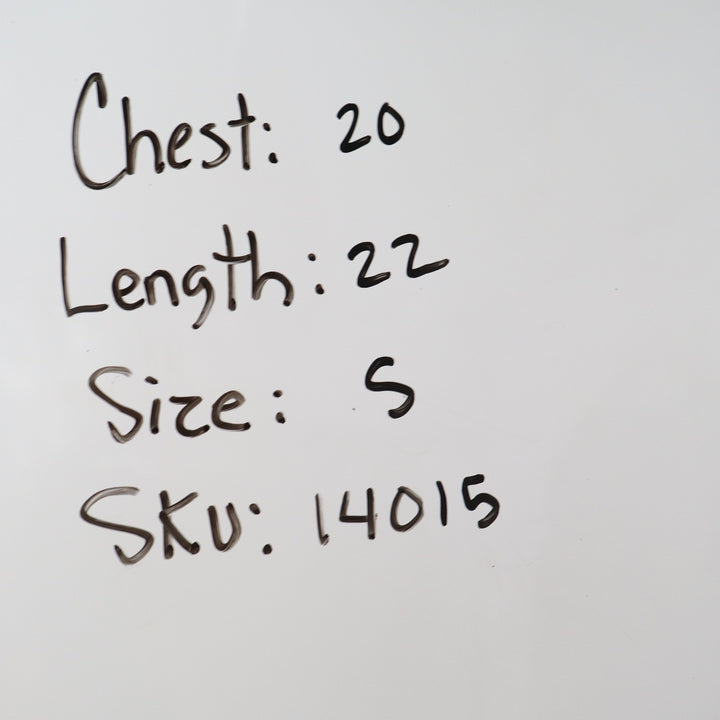 Chest: 20
Length: 22
Size: S
SKU: 14015